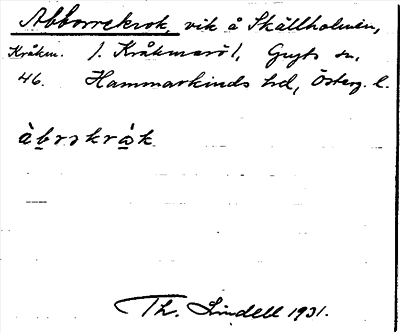 Abborrekrok, vik å Skällholmen,
Kråkm. /. Kråkmarö/, Gryts sn,
46. Hammarkinds hd, Österg. l.
àbrskràk
Th. Lindell 1931.